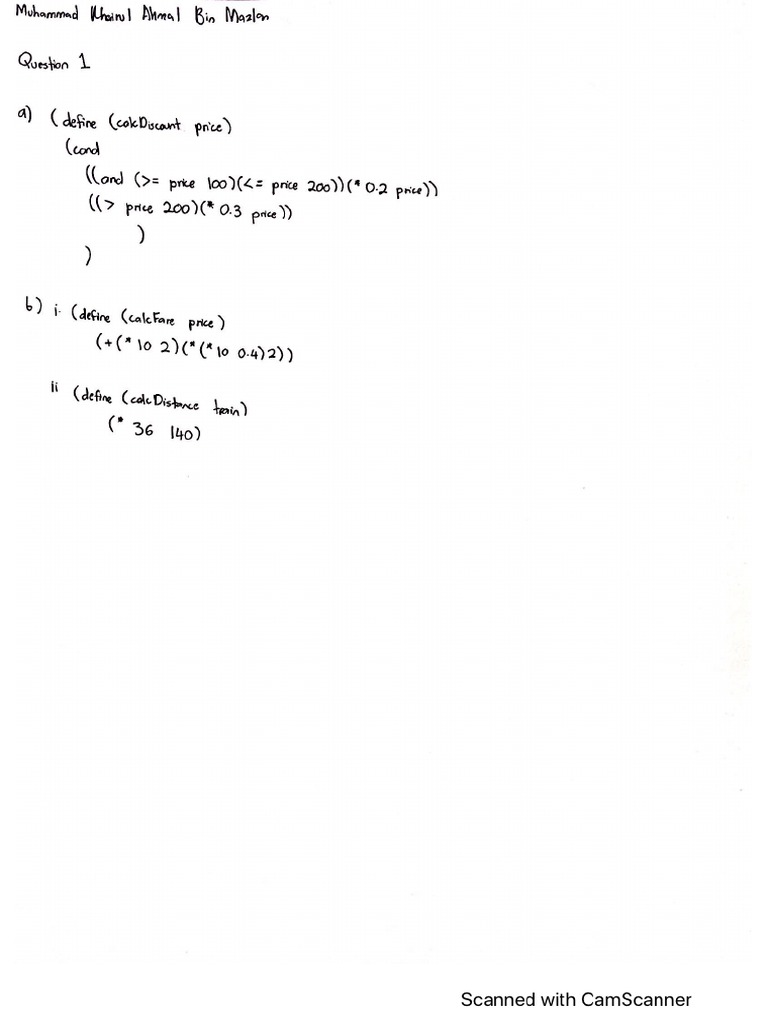 Muhammad Khairul Ahmal Bin Mazlan
Question 1
a) (define (calcDiscount price)
(cond
((and (>= price 100)(<= price 200))(* 0.2 price))
((> price 200)(* 0.3 price))
)
)
b) i. (define (calcFare price)
(+(* 10 2)(*(* 10 0.4)2))
ii (define (calcDistance train)
(* 36 140)
Scanned with CamScanner